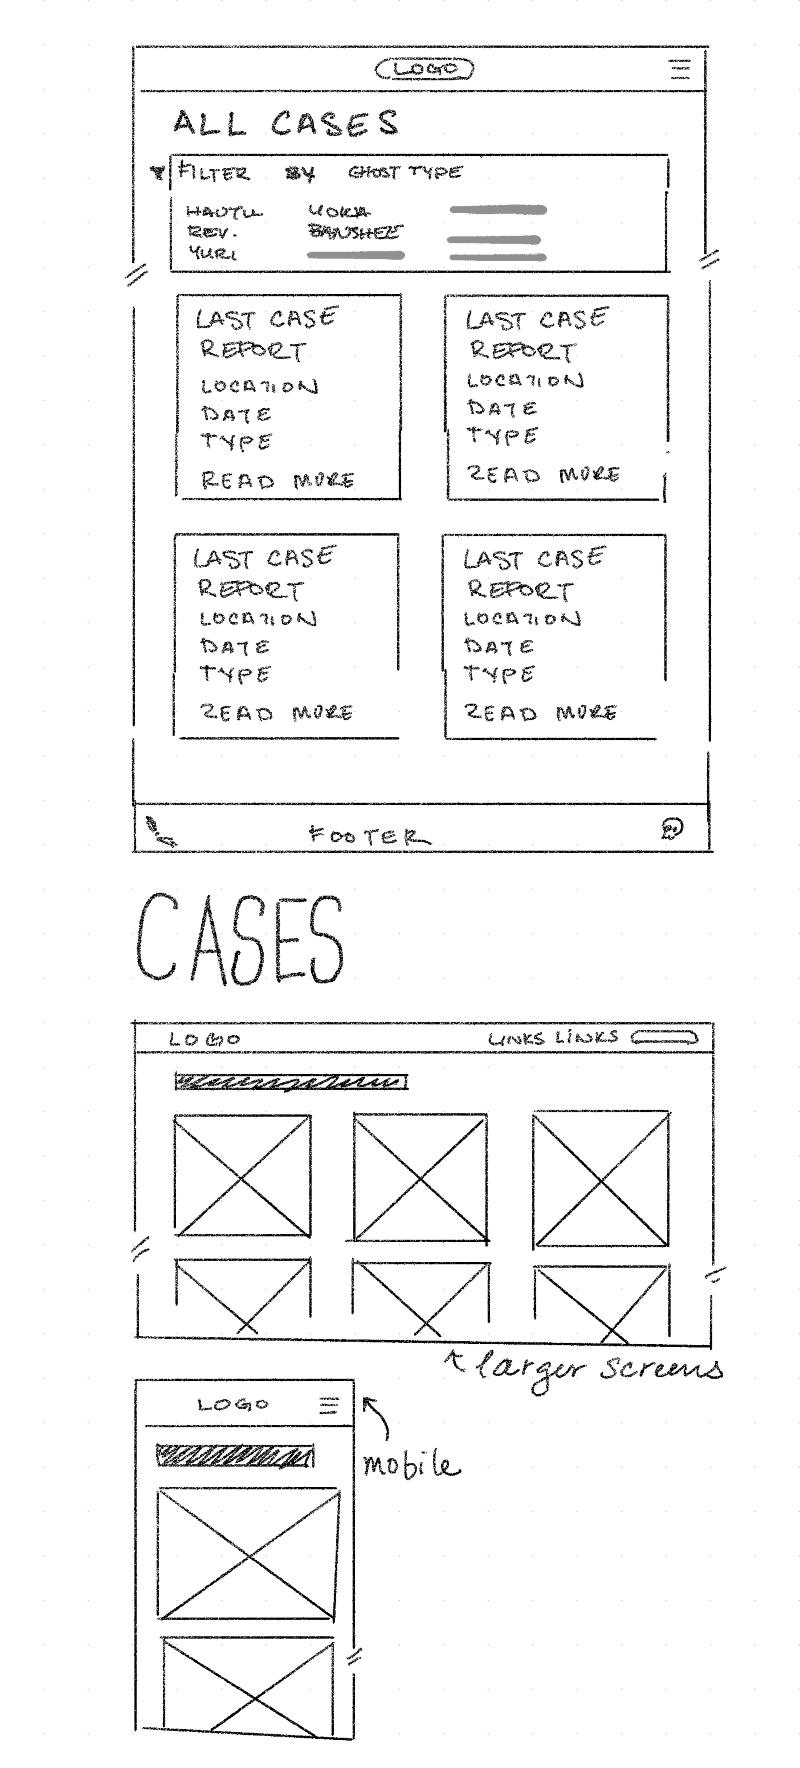 LOGO
ALL CASES
FILTER BY GHOST TYPE
HAUTU YOKIA
REV. BANSHEE
YURI
LAST CASE
REPORT
LOCATION
DATE
TYPE
READ MORE
LAST CASE
REPORT
LOCATION
DATE
TYPE
READ MORE
LAST CASE
REPORT
LOCATION
DATE
TYPE
READ MORE
LAST CASE
REPORT
LOCATION
DATE
TYPE
READ MORE
FOOTER
CASES
LOGO LINKS LINKS
larger screens
LOGO
mobile